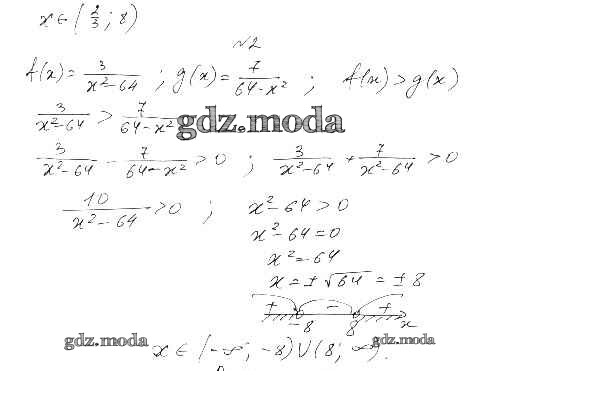 x ∈ (2/3; 8)
№2
f(x) = 3/(x²-64) ; g(x) = 7/(64-x²) ; f(x) > g(x)
3/(x²-64) > 7/(64-x²)
gdz.moda
3/(x²-64) - 7/(64-x²) > 0 ; 3/(x²-64) + 7/(x²-64) > 0
10/(x²-64) > 0 ; x²-64 > 0
x²-64 = 0
x² = 64
x = ±√64 = ±8
+ - +
-8 8 x
gdz.moda
x ∈ (-∞; -8) ∪ (8; ∞).
gdz.moda